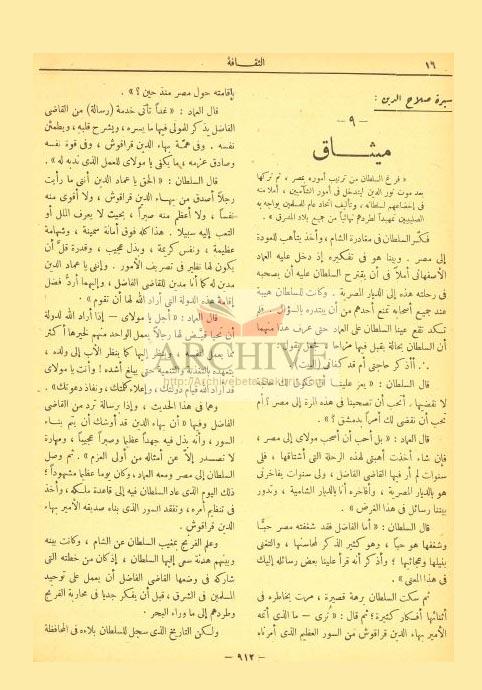 ١٦
الثقافة
سيرة صلاح الدين :
— ٩ —
ميثاق
« فرغ السلطان من ترتيب أموره بمصر ، ثم تركها
بعد موت نور الدين ليتدخل في أمور الشآميين ، أملا منه
في إخضاعهم لسلطانه ، وتأليف اتحاد عام للمسلمين يواجه به
الصليبيين تمهيدا لطردهم نهائيا من جميع بلاد المشرق » .
فكّر السلطان في مغادرة الشام ، وأخذ يتأهب للعودة
إلى مصر . وبينا هو في تفكيره إذ دخل عليه العماد
الأصفهانى أملاً في أن يقترح السلطان عليه أن يصحبه
في رحلته هذه إلى الديار المصرية . وكانت للسلطان هيبة
عند جميع أصحابه تمنع أحدهم من أن يبتدره بالسؤال . فلم
تكد تقع عينا السلطان على العماد حتى عرف هذا منهما
أن السلطان بحالة يقبل فيها
أأذكر حاجتى أم قد كفانى
قال السلطان : « يعز علينا أن تكون لك
لا نقضيها . أتحب أن تصحبنا في هذه المرة إلى مصر ؟ أم
تحب أن نقضى لك أمراً بدمشق ؟ »
قال العماد : « بل أحب أن أصحب مولاى إلى مصر ،
فإن شاء أخذت أهبتى لهذه الرحلة التى أشتاقها ، فلى
سنوات لم أر فيها القاضى الفاضل ، ولى سنوات يفاخرنى
هو بالديار المصرية ، وأفاخره أنا بالديار الشامية ، وتدور
بيننا رسائل في هذا الغرض » .
قال السلطان : « أما الفاضل فقد شغفته مصر حبًّا
وشغفها هو حبا ، وهو كثير الذكر لمحاسنها ، والتغنى
بنيلها ومجائبها ؛ وأذكر أنه قرأ علينا بعض رسائله إليك
في هذا المعنى »
ثم سكت السلطان برهة قصيرة ، مرت بخاطره في
أثنائها أفكار كثيرة ؛ ثم قال : « تُرى — ما الذى أتمه
الأمير بهاء الدين قراقوش من السور العظيم الذى أمرناه
بإقامته حول مصر منذ حين ؟ » .
قال العماد : « غداً تأتى خدمة (رسالة) من القاضى
الفاضل يذكر لمولاى فيها ما يسره ، ويشرح قلبه ، ويطمئن
نفسه . وفى همّة بهاء الدين قراقوش ، وفى قوة نفسه
وصادق عزمه ، ما يكفى يا مولاى للعمل الذى تدبه له » .
قال السلطان : « الحق يا عماد الدين أننى ما رأيت
رجلاً أصدق من بهاء الدين قراقوش ، ولا أقوى منه
نفساً ، ولا أعظم منه صبراً ، بحيث لا يعرف الملل أو
التعب إليه سبيلا . هذا كله فوق أمانة ، وشهامة
عظيمة ، ونفس كريمة ، وبذل عجيب ، وقدرة قلَّ أن
يكون لها نظير في تصريف الأمور . وإننى يا عماد الدين
مدين له كما أنا مدين للقاضى الفاضل ، وإليهما أردُّ فضل
إقامة هذه الدولة التى أراد الله لها أن تقوم » .
قال العماد : « أجل يا مولاى — إذا أراد الله لدولة
أن تحيا قيض لها رجالاً يعمل الواحد منهم لخيرها أكثر
مما يعمل ينظر إليها كما ينظر الأب إلى ولده ،
يتعهده بالتغذية والتنمية حتى يبلغ أشده ! وأنت يا مولاى
قد أراد الله قيام دولتك ، وإعلاء كلمتك ، ونفاذ دعوتك » .
وهما في هذا الحديث ، وإذا برسالة ترد من القاضى
الفاضل وفيها « أن بهاء الدين قد أوشك أن يتم بناء
السور ، وأنه بذل فيه جهداً عظيما وصبراً عجيبا ، ومهارة
لا تصدر إلا عن أمثاله من أولى العزم » . ثم وصل
السلطان إلى مصر ومعه العماد ، وكان يوما عظيما مشهوداً ؛
ذلك اليوم الذى عاد السلطان فيه إلى قاعدة ملكه ، وأخذ
في تنظيم أمره ، وتفقد السور الذى بناه صديقه الأمير بهاء
الدين قراقوش .
وعلم الفرنج بمغيب السلطان عن الشام ، وكانت بينه
وبينهم هدنة سعى إليها السلطان ، إذ كان من خطته التى
شاركه في وضعها القاضى الفاضل أن يعمل على توحيد
المسلمين فى الشرق ، قبل أن يفكر جديا فى محاربة الفرنج
وطردهم إلى ما وراء البحر .
ولكن التاريخ الذى سجل للسلطان بلاءه فى المحافظة
— ٩١٢ —
ARCHIVE
http://Archivebeta.Sakhrit.com